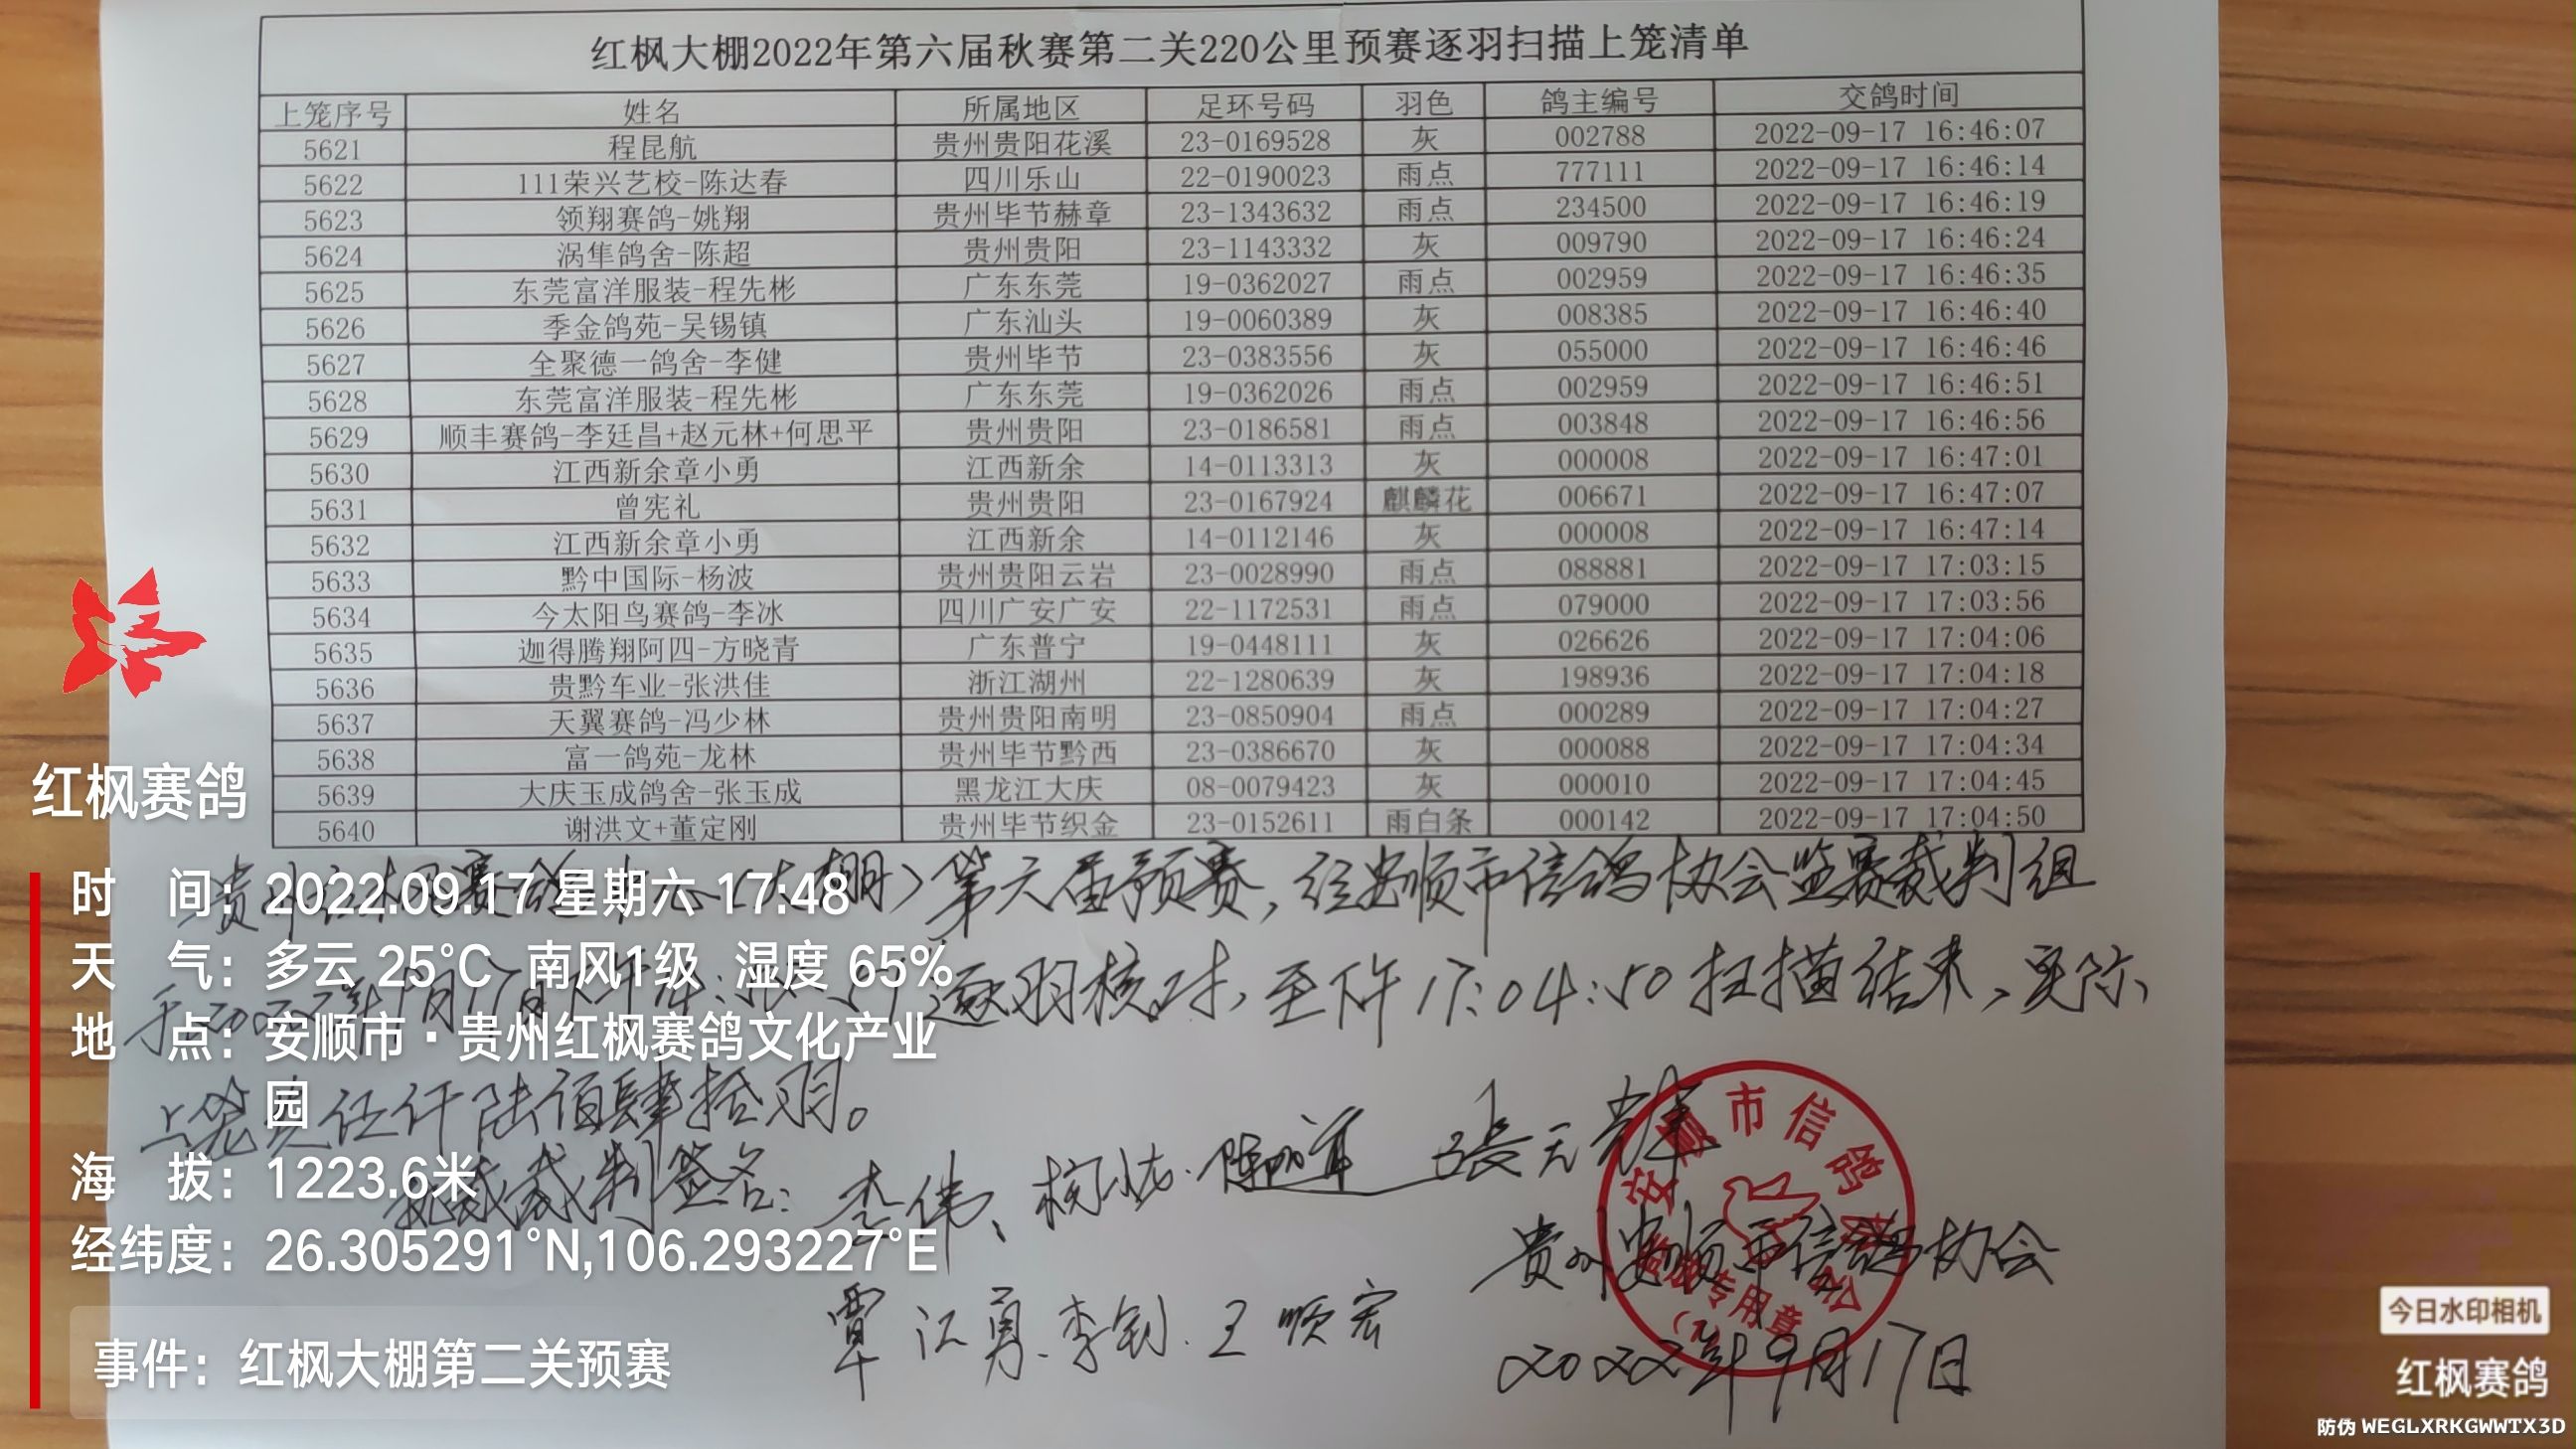 红枫大棚2022年第六届秋赛第二关220公里预赛逐羽扫描上笼清单
上笼序号 姓名 所属地区 足环号码 羽色 鸽主编号 交鸽时间
5621 程昆航 贵州贵阳花溪 23-0169528 灰 002788 2022-09-17 16:46:07
5622 111荣兴艺校-陈达春 四川乐山 22-0190023 雨点 777111 2022-09-17 16:46:14
5623 领翔赛鸽-姚翔 贵州毕节赫章 23-1343632 雨点 234500 2022-09-17 16:46:19
5624 涡隼鸽舍-陈超 贵州贵阳 23-1143332 灰 009790 2022-09-17 16:46:24
5625 东莞富洋服装-程先彬 广东东莞 19-0362027 雨点 002959 2022-09-17 16:46:35
5626 季金鸽苑-吴锡镇 广东汕头 19-0060389 灰 008385 2022-09-17 16:46:40
5627 全聚德一鸽舍-李健 贵州毕节 23-0383556 灰 055000 2022-09-17 16:46:46
5628 东莞富洋服装-程先彬 广东东莞 19-0362026 雨点 002959 2022-09-17 16:46:51
5629 顺丰赛鸽-李廷昌+赵元林+何思平 贵州贵阳 23-0186581 雨点 003848 2022-09-17 16:46:56
5630 江西新余章小勇 江西新余 14-0113313 灰 000008 2022-09-17 16:47:01
5631 曾宪礼 贵州贵阳 23-0167924 麒麟花 006671 2022-09-17 16:47:07
5632 江西新余章小勇 江西新余 14-0112146 灰 000008 2022-09-17 16:47:14
5633 黔中国际-杨波 贵州贵阳云岩 23-0028990 雨点 088881 2022-09-17 17:03:15
5634 今太阳鸟赛鸽-李冰 四川广安广安 22-1172531 雨点 079000 2022-09-17 17:03:56
5635 迦得腾翔阿四-方晓青 广东普宁 19-0448111 灰 026626 2022-09-17 17:04:06
5636 贵黔车业-张洪佳 浙江湖州 22-1280639 灰 198936 2022-09-17 17:04:18
5637 天翼赛鸽-冯少林 贵州贵阳南明 23-0850904 雨点 000289 2022-09-17 17:04:27
5638 富一鸽苑-龙林 贵州毕节黔西 23-0386670 灰 000088 2022-09-17 17:04:34
5639 大庆玉成鸽舍-张玉成 黑龙江大庆 08-0079423 灰 000010 2022-09-17 17:04:45
5640 谢洪文+董定刚 贵州毕节织金 23-0152611 雨白条 000142 2022-09-17 17:04:50
大棚）第六届预赛，经安顺市信鸽协会监赛裁判组
逐羽核对，至下午17:04:50扫描结束，实际
上笼为伍仟陆佰肆拾羽。
裁判签名：李伟、
张天辉
覃江勇、李钊、王顺宏
贵州安顺市信鸽协会
2022年9月17日
安顺市信鸽协会
专用章
红枫赛鸽
时 间：2022.09.17 星期六 17:48
天 气：多云 25℃ 南风1级 湿度 65%
地 点：安顺市·贵州红枫赛鸽文化产业
园
海 拔：1223.6米
经纬度：26.305291°N,106.293227°E
事件：红枫大棚第二关预赛
今日水印相机
红枫赛鸽
防伪 WEGLXRKGWWTX3D